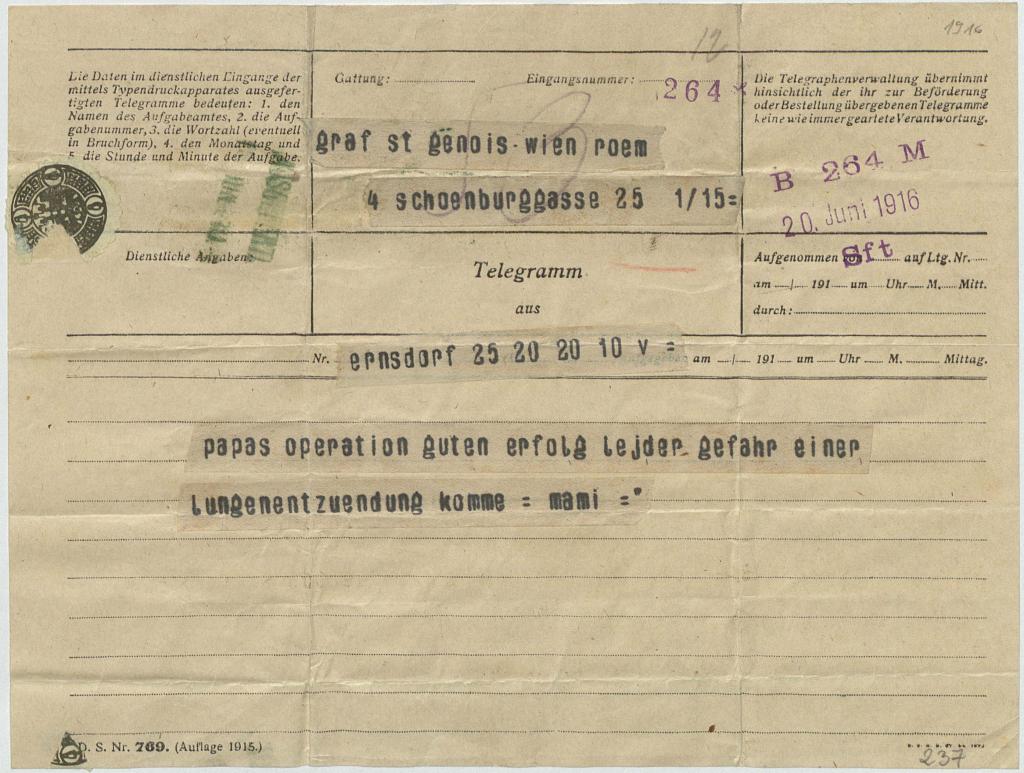 1916
12
Die Daten im dienstlichen Eingange der
mittels Typendruckapparates ausgefer-
tigten Telegramme bedeuten: 1. den
Namen des Aufgabeamtes, 2. die Auf-
gabenummer, 3. die Wortzahl (eventuell
in Bruchform), 4. den Monatstag und
5. die Stunde und Minute der Aufgabe.
Gattung:
Eingangsnummer:
264
Die Telegraphenverwaltung übernimmt
hinsichtlich der ihr zur Beförderung
oder Bestellung übergebenen Telegramme
keine wie immer geartete Verantwortung.
graf st genois wien roem
4 schoenburggasse 25 1/15=
B 264 M
20. Juni 1916
Sft
Dienstliche Angaben:
Telegramm
aus
Aufgenommen auf Ltg. Nr.
am / 191 um Uhr M. Mitt.
durch:
Nr. ernsdorf 25 20 20 10 v = am / 191 um Uhr M. Mittag.
papas operation guten erfolg lejder gefahr einer
lungenentzuendung komme = mami ="
D. S. Nr. 769. (Auflage 1915.)
237